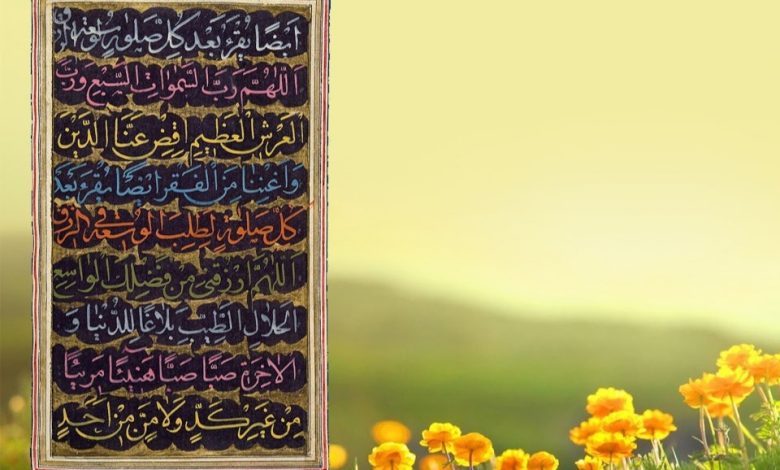 ايضًا يقرء بعد كل صلوة لسعة الرزق
اَللّٰهُمَّ رَبَّ السَّمٰوَاتِ السَّبْعِ وَرَبَّ
العَرْشِ الْعَظِيمِ اِقْضِ عَنَّا الدَّيْنَ
وَاغْنِنَا مِنَ الْفَقْرِ ايضًا يُقْرَءُ بَعْدَ
كل صلوةٍ لِطلبِ الوسعة في الرزق
اَللّٰهُمَّ ارْزُقْنِي مِنْ فَضْلِكَ الْوَاسِعِ
الْحَلَالِ الطَّيِّبِ بَلَاغًا لِلدُّنْيَا وَ
الْاٰخِرَةِ صَبًّا صَبًّا هَنِيئًا مَرِيئًا
مِنْ غَيْرِ كَدٍّ وَلَا مَنٍّ مِنْ اَحَدٍ